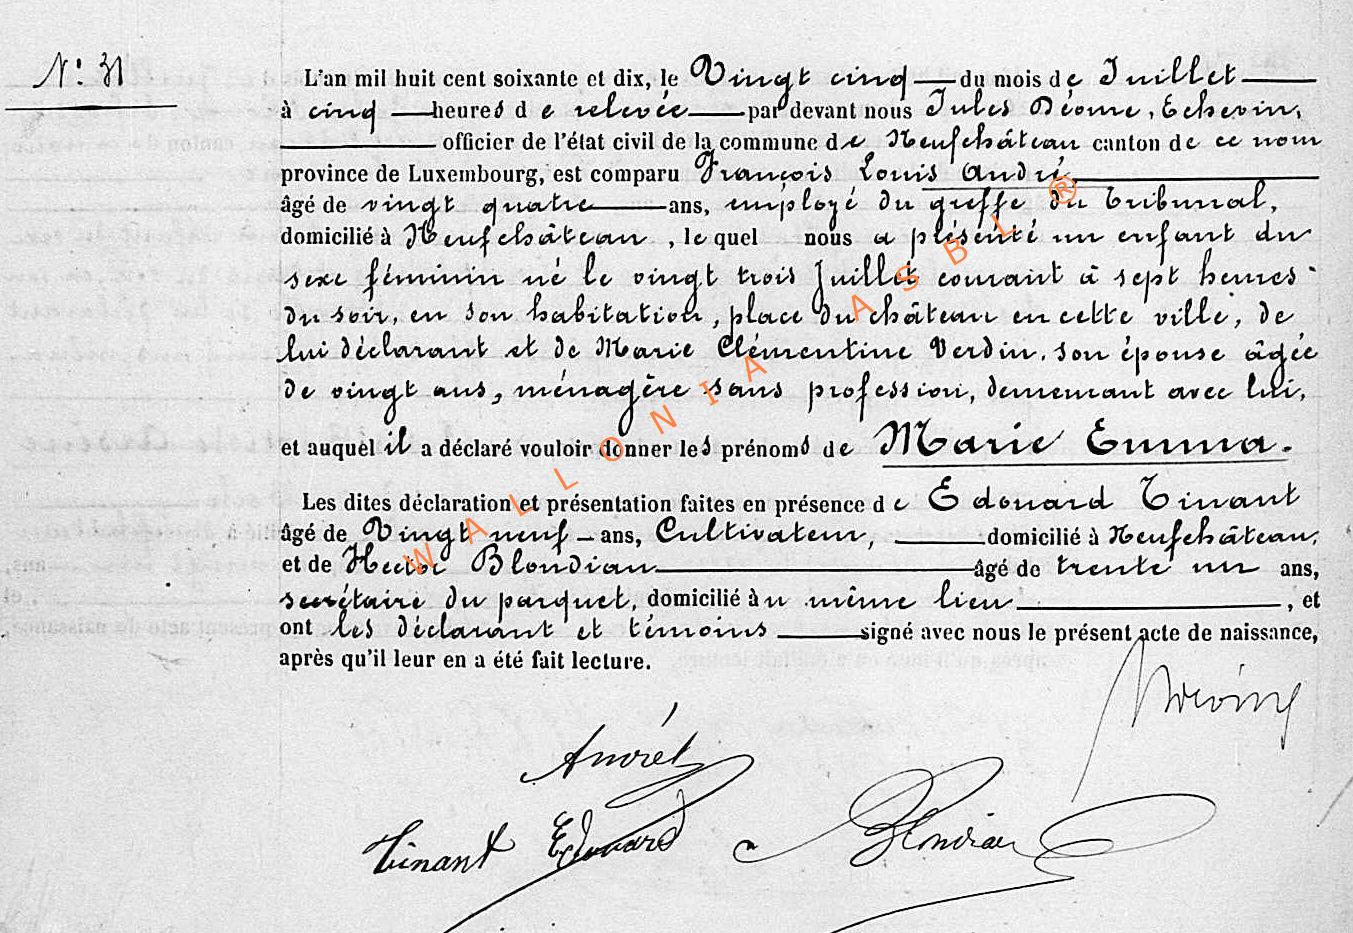 N.º 31
L'an mil huit cent soixante et dix, le Vingt cinq du mois de Juillet
à cinq heures de relevée par devant nous Jules Déome, Echevin,
officier de l'état civil de la commune de Neufchâteau canton de ce nom
province de Luxembourg, est comparu François Louis André
âgé de vingt quatre ans, employé du greffe du Tribunal,
domicilié à Neufchâteau, le quel nous a présenté un enfant du
sexe féminin né le vingt trois Juillet courant à sept heures
du soir, en son habitation, place du château en cette ville, de
lui déclarant et de Marie Clémentine Verdin, son épouse âgée
de vingt ans, ménagère sans profession, demeurant avec lui,
et auquel il a déclaré vouloir donner les prénoms de Marie Emma.
Les dites déclaration et présentation faites en présence de Edouard Tinant
âgé de Vingt neuf ans, Cultivateur, domicilié à Neufchâteau,
et de Hector Blondiau âgé de trente un ans,
secrétaire du parquet, domicilié à u même lieu, et
ont les déclarant et témoins signé avec nous le présent acte de naissance,
après qu'il leur en a été fait lecture.
André
Tinant Edouard Blondiau
WALLONIA ASBL ®